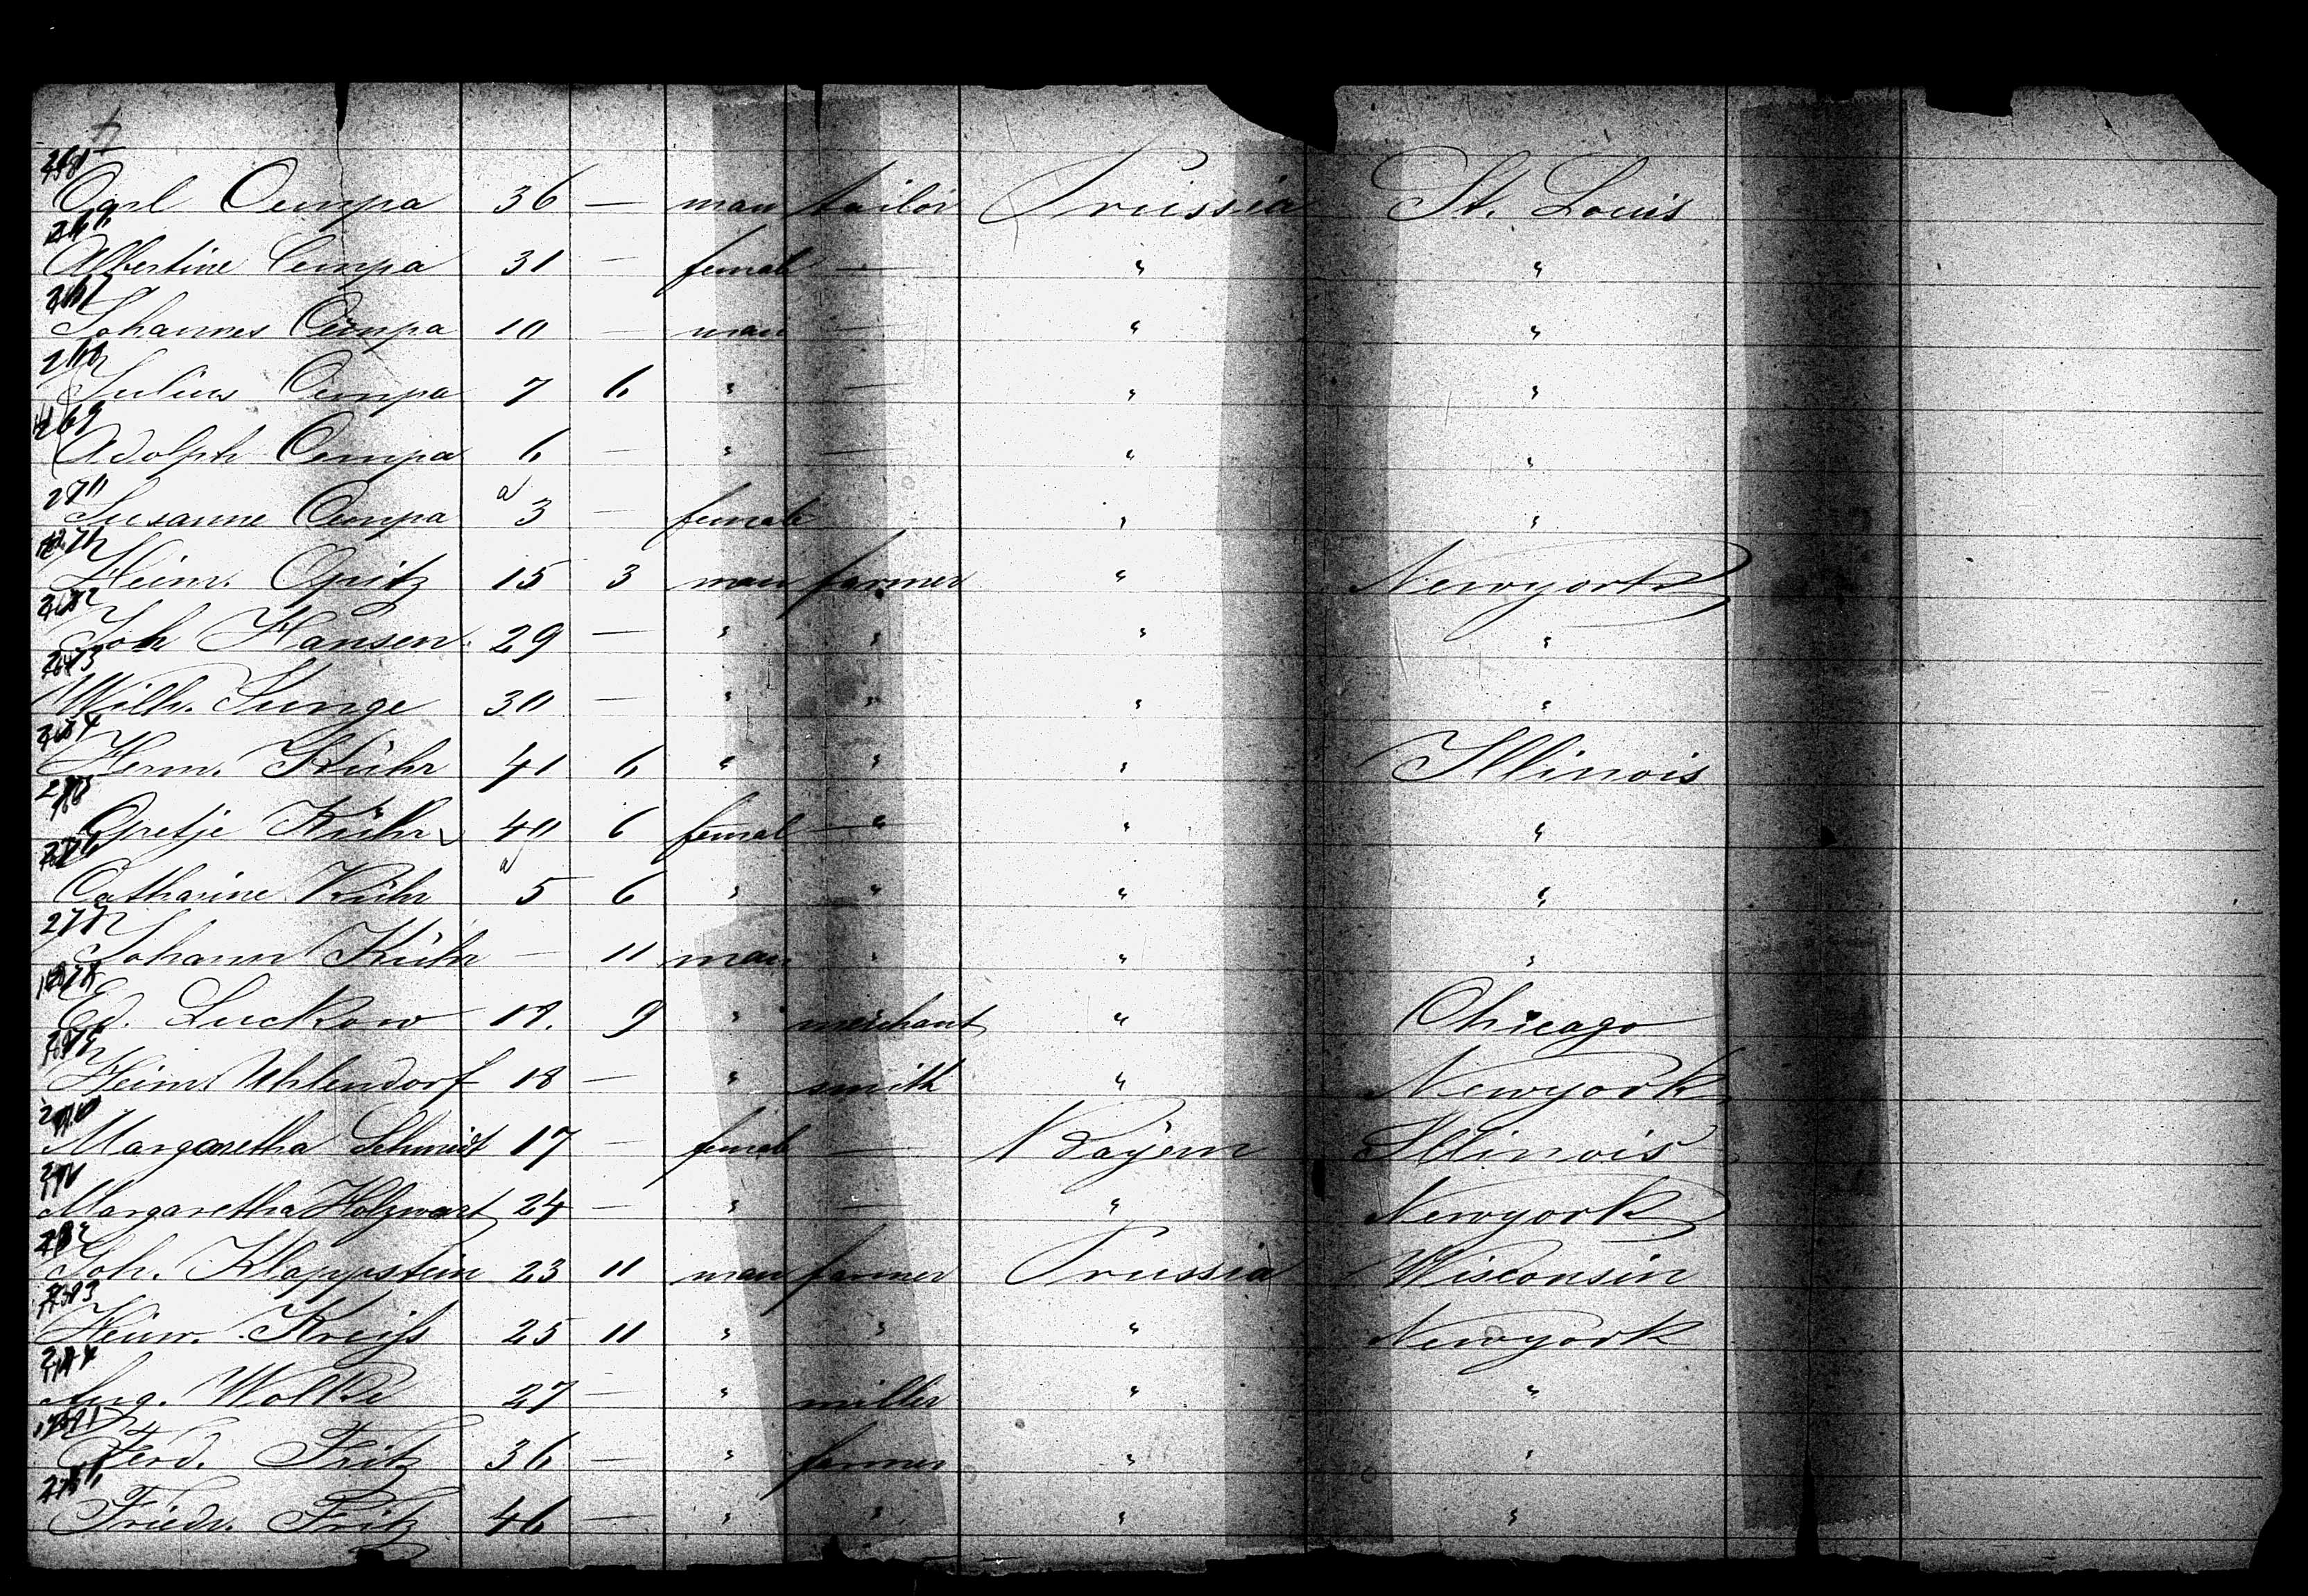 Carl Cempa 36 — man tailor Prussia St. Louis
Albertine Cempa 31 — female — " "
Johannes Cempa 10 — man — " "
Julius Cempa 7 6 " — " "
269
Adolph Cempa 6 — " — " "
270
Susanne Cempa 3 — female " "
Heinr. Opitz 15 3 man farmer " Newyork
Joh Hansen 29 — " " " "
Wilh. Junge 30 — " " " "
Herm. Kühr 41 6 " " " Illinois
Gretje Kühr 40 6 female — " " "
Catharine Kühr 5 6 " " " "
Johann Kühr — 11 man " " "
Ed. Luckow 18. 9 " merchant " Chicago
Heinr. Uhlendorf 18 — " smith " Newyork
Margaretha Schmidt 17 — female — Bayern Illinois
Margaretha Holzwart 24 — " — " Newyork
Joh. Klappstein 23 11 man farmer Prussia Wisconsin
Heinr. Kreiss 25 11 " " " Newyork
Aug. Wolke 27 — " miller " "
Ferd. Fritz 36 — " farmer " "
Friedr. Fritz 46 — " " " "